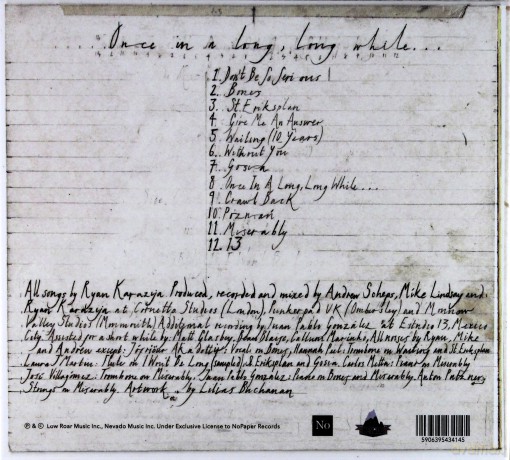 ...Once in a long, long while...
1. Don't Be So Serious!
2. Bones
3. St. Eriksplan
4. Give Me An Answer
5. Waiting (10 Years)
6. Without You
7. Gosia
8. Once In A Long, Long While....
9. Crawl Back
10. Poznań
11. Miserably
12. 13
All songs by Ryan Karazija. Produced, recorded and mixed by Andrew Scheps, Mike Lindsay and
Ryan Karazija at Cornetto Studios (London), Punkerpad UK (Omber Sley) and Monnow
Valley Studios (Monmouth) Additional recording by Juan Pablo González at Estudio 13, Mexico
City. Assisted for a short while by: Matt Glasbey, Callum Marinho, All noises by Ryan, Mike
and Andrew except: Vocal on Bones, Hannah Peel: Trombone on Waiting and St. Eriksplan
Laura J Martin: Flute on I Won't Be Long (sampled), St. Eriksplan and Gosia. Carlos Piano on Miserably
José Villagómez: Trombone on Miserably. Juan Pablo González: Piano on Bones and Miserably. Anton
Strings on Miserably. Artwork by Lucius Buchanan
℗ & © Low Roar Music Inc., Nevado Music Inc. Under Exclusive License to NoPaper Records
No
5906395434145